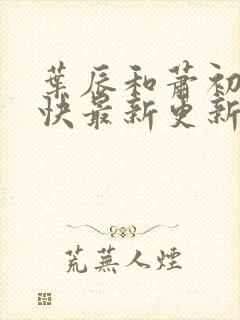 葉辰和蕭初
快最新更新
荒蕪人煙